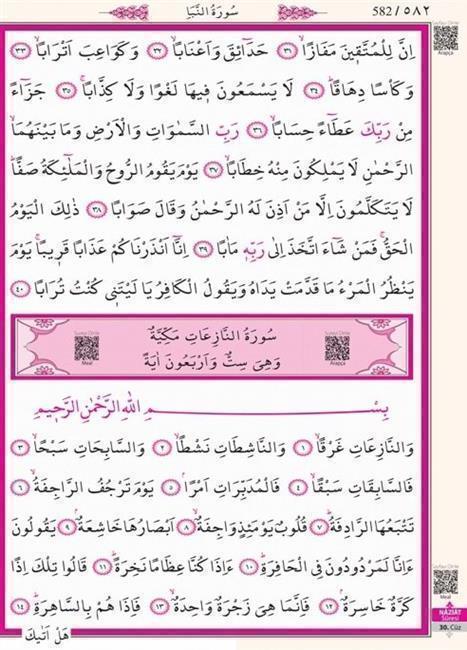 سُورَةُ النَّبَأِ
582/٥٨٢
Sayfayı Dinle
Arapça
اِنَّ لِلْمُتَّق۪ينَ مَفَازًاۙ ﴿٣١﴾ حَدَٓائِقَ وَاَعْنَابًاۙ ﴿٣٢﴾ وَكَوَاعِبَ اَتْرَابًاۙ ﴿٣٣﴾
وَكَأْسًا دِهَاقًاۜ ﴿٣٤﴾ لَا يَسْمَعُونَ ف۪يهَا لَغْوًا وَلَا كِذَّابًاۚ ﴿٣٥﴾ جَزَٓاءً
مِنْ رَبِّكَ عَطَٓاءً حِسَابًاۙ ﴿٣٦﴾ رَبِّ السَّمٰوَاتِ وَالْاَرْضِ وَمَا بَيْنَهُمَا
الرَّحْمٰنِ لَا يَمْلِكُونَ مِنْهُ خِطَابًاۚ ﴿٣٧﴾ يَوْمَ يَقُومُ الرُّوحُ وَالْمَلٰٓئِكَةُ صَفًّاۜ
لَا يَتَكَلَّمُونَ اِلَّا مَنْ اَذِنَ لَهُ الرَّحْمٰنُ وَقَالَ صَوَابًا ﴿٣٨﴾ ذٰلِكَ الْيَوْمُ
الْحَقُّۚ فَمَنْ شَٓاءَ اتَّخَذَ اِلٰى رَبِّه۪ مَاٰبًا ﴿٣٩﴾ اِنَّٓا اَنْذَرْنَاكُمْ عَذَابًا قَر۪يبًاۚ يَوْمَ
يَنْظُرُ الْمَرْءُ مَا قَدَّمَتْ يَدَاهُ وَيَقُولُ الْكَافِرُ يَا لَيْتَن۪ي كُنْتُ تُرَابًا ﴿٤٠﴾
سُورَةُ النَّازِعَاتِ مَكِّيَّةٌ
وَهِيَ سِتٌّ وَاَرْبَعُونَ اٰيَةً
Sureyi Dinle
Meal
Sureyi Dinle
Arapça
بِسْمِ اللّٰهِ الرَّحْمٰنِ الرَّح۪يمِ
وَالنَّازِعَاتِ غَرْقًاۙ ﴿١﴾ وَالنَّاشِطَاتِ نَشْطًاۙ ﴿٢﴾ وَالسَّابِحَاتِ سَبْحًاۙ ﴿٣﴾
فَالسَّابِقَاتِ سَبْقًاۙ ﴿٤﴾ فَالْمُدَبِّرَاتِ اَمْرًاۢ ﴿٥﴾ يَوْمَ تَرْجُفُ الرَّاجِفَةُۙ ﴿٦﴾
تَتْبَعُهَا الرَّادِفَةُۜ ﴿٧﴾ قُلُوبٌ يَوْمَئِذٍ وَاجِفَةٌۙ ﴿٨﴾ اَبْصَارُهَا خَاشِعَةٌۢ ﴿٩﴾ يَقُولُونَ
ءَاِنَّا لَمَرْدُودُونَ فِي الْحَافِرَةِۜ ﴿١٠﴾ ءَاِذَا كُنَّا عِظَامًا نَخِرَةًۜ ﴿١١﴾ قَالُوا تِلْكَ اِذًا
كَرَّةٌ خَاسِرَةٌۢ ﴿١٢﴾ فَاِنَّمَا هِيَ زَجْرَةٌ وَاحِدَةٌۙ ﴿١٣﴾ فَاِذَا هُمْ بِالسَّاهِرَةِۜ ﴿١٤﴾
هَلْ اَتٰيكَ
Sayfayı Dinle
Meal
NÂZİÂT
Sûresi
30. Cüz